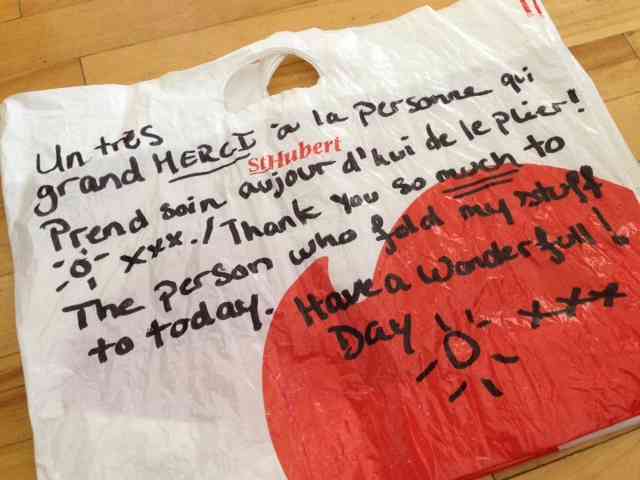 Un très
grand MERCI à la personne qui
StHubert
Prend soin aujourd'hui de le plier!
xxx. / Thank you so much to
The person who fold my stuff
to today. Have a Wonderfull!
Day xxx